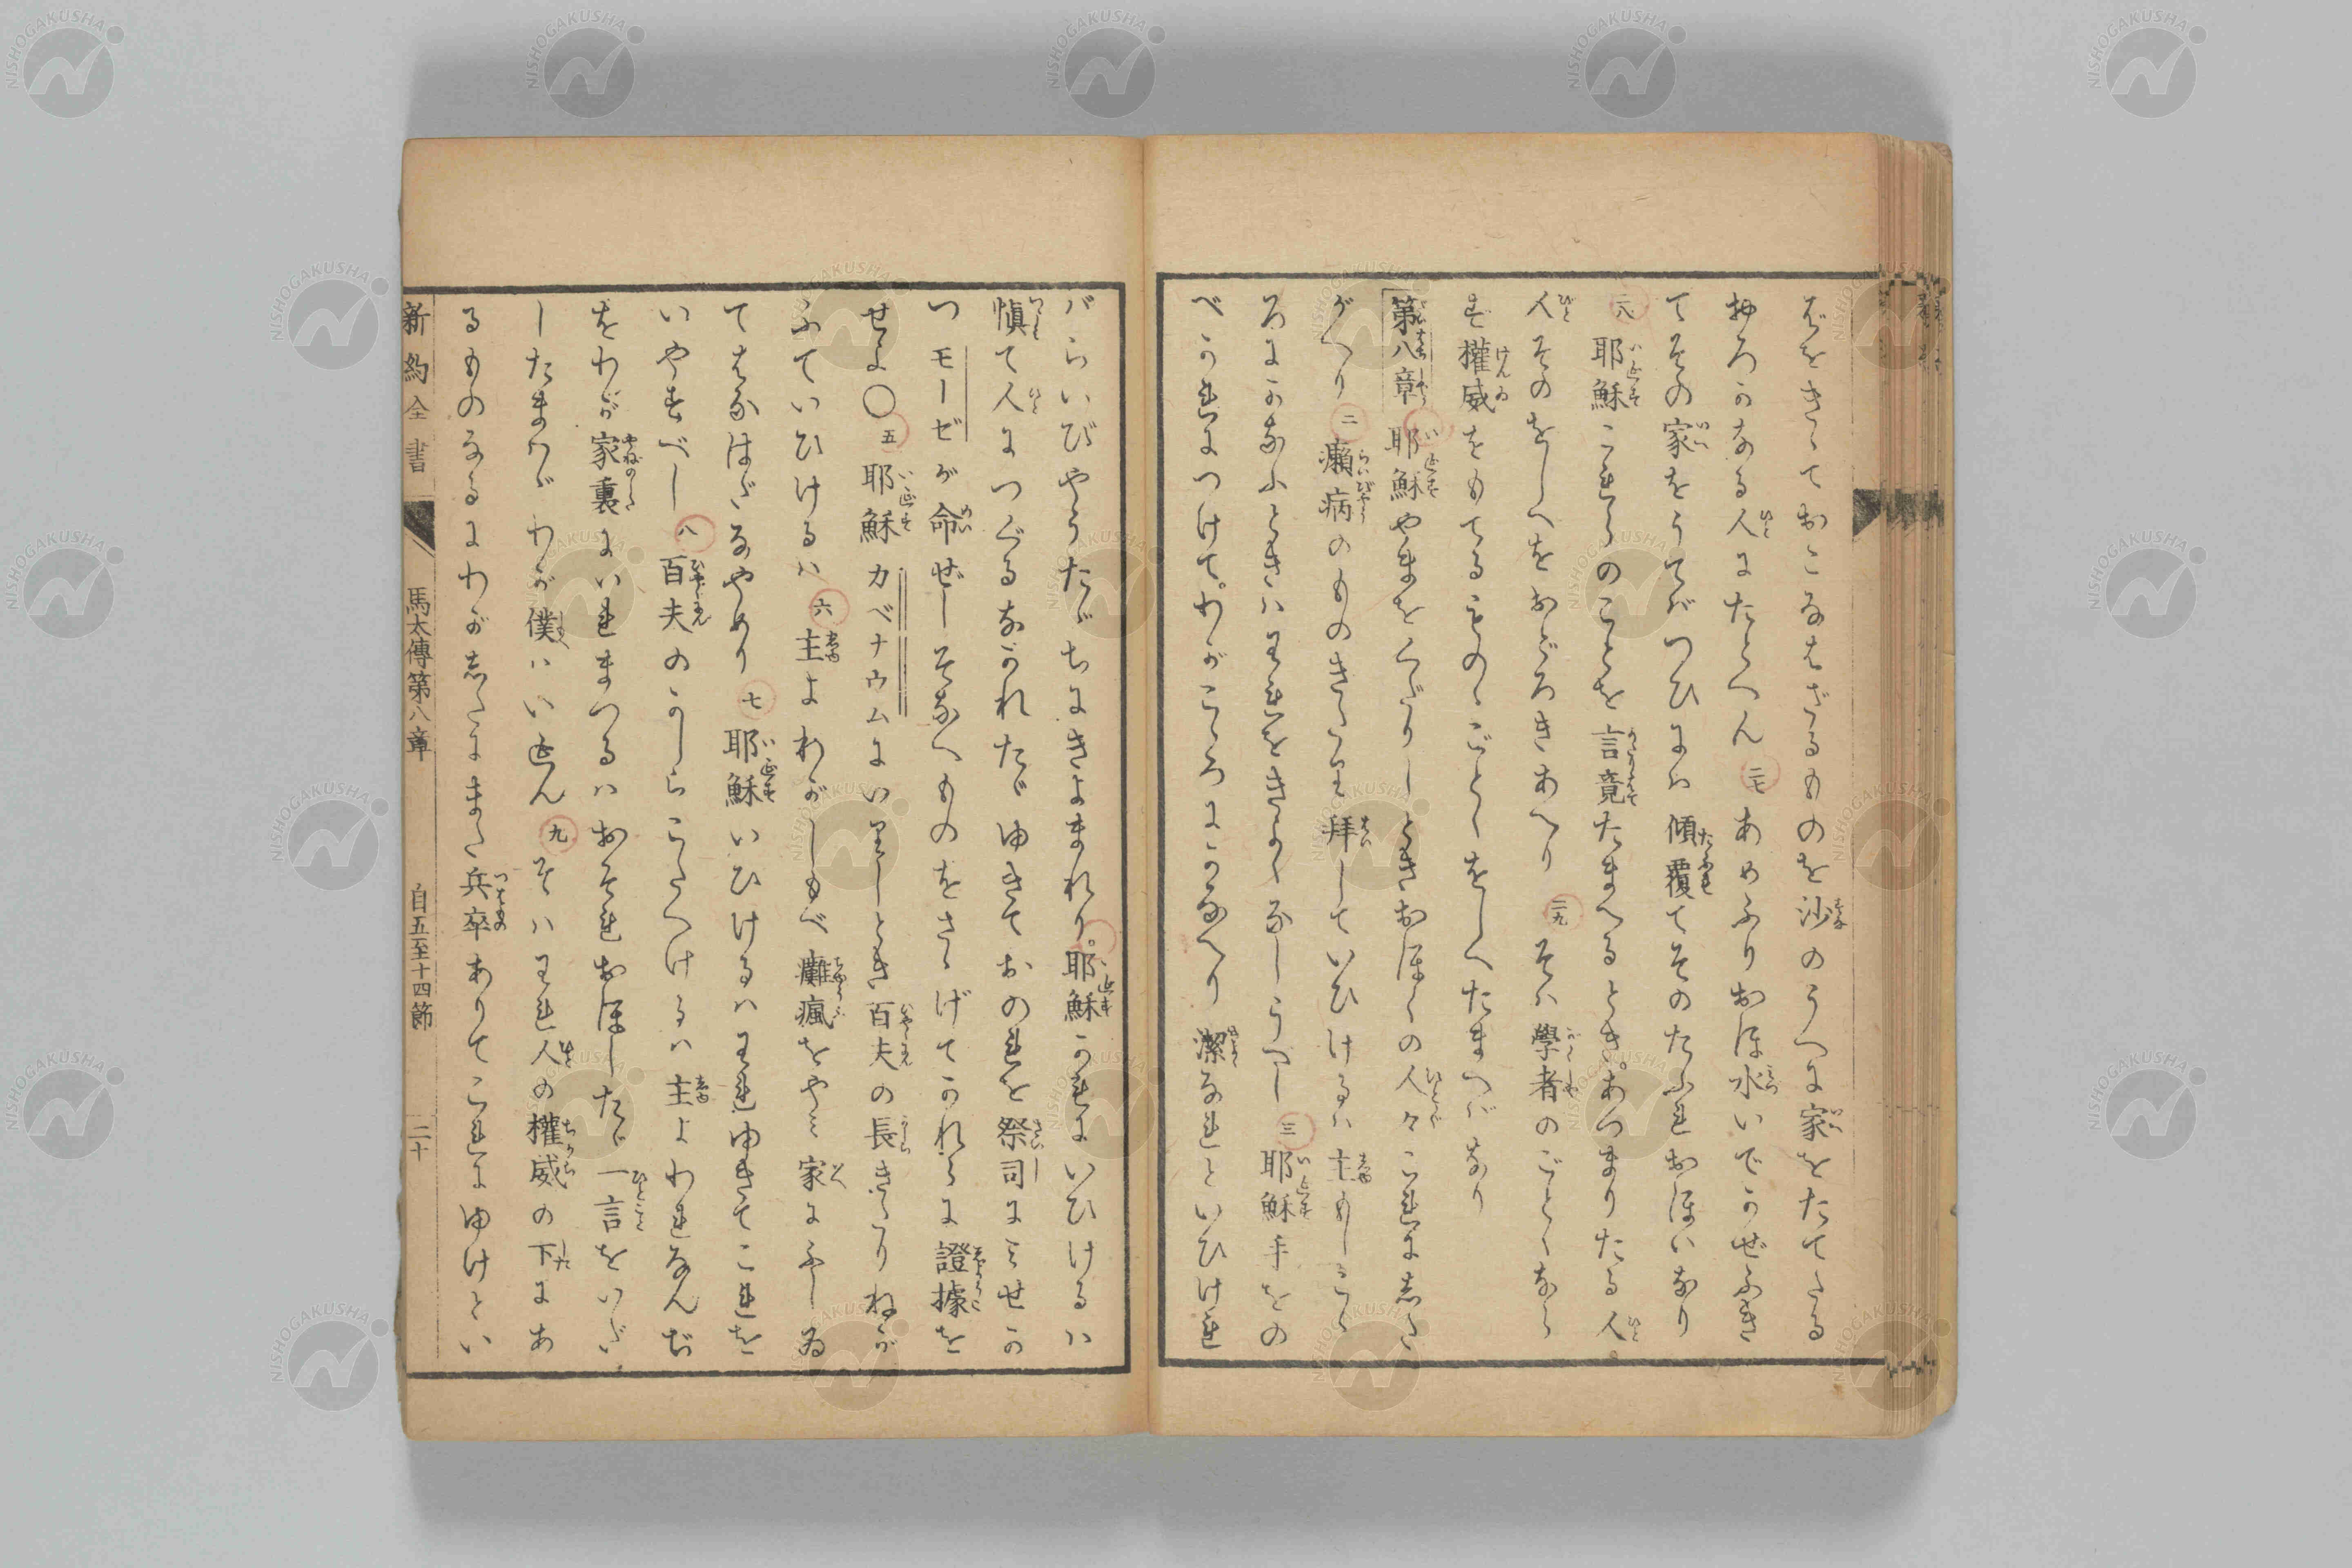 ばをきゝておこなはざるものを沙のうへに家をたてたる
おろかなる人にたとへん 二七 あめふりおほ水いでかぜふき
てその家をうてばつひにハ傾覆てそのたふれおほいなり
二八 耶穌これらのことを言竟たまへるとき。あつまりたる人
人そのをしへをおどろきあへり 二九 そハ學者のごとくなら
ず權威をもてるものゝごとくをしへたまへばなり
第八章 耶穌やまをくだりしときおほくの人々これにした
がへり 二 癩病のものきたり拜していひけるハ主もしこゝ
ろにかなふときハわれをきよくなしうべし 三 耶穌手をの
べかれにつけて。わがこゝろにかなへり潔なれといひけれ
バらいびやうたゞちにきよまれり。耶穌かれにいひけるハ
愼て人につぐるなかれたゞゆきておのれを祭司にみせか
つモーゼが命ぜしそなへものをさゝげてかれらに證據を
せよ〇 五 耶穌カペナウムにいりしとき百夫の長きたりねが
ふていひけるハ 六 主よわがしもべ癱瘋をやみ家にふしゐ
てはなはだなやめり 七 耶穌いひけるハわれゆきてこれを
いやすべし 八 百夫のかしらこたへけるハ主よわれなんぢ
をわが家裏にいれまつるハおそれおほしたゞ一言をいだ
したまハゞわが僕ハいえん 九 そハわれ人の權威の下にあ
るものなるにわが志たにまた兵卒ありてこれにゆけとい
新約全書 馬太傳第八章 自五至十四節 二十